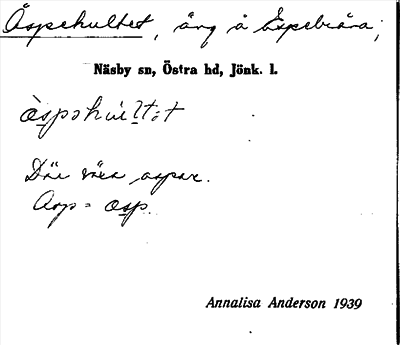 Äspehultet, äng å Äspebråra;
Näsby sn, Östra hd, Jönk. l.
äspehultet
Där växa aspar.
Asp = äsp.
Annalisa Anderson 1939